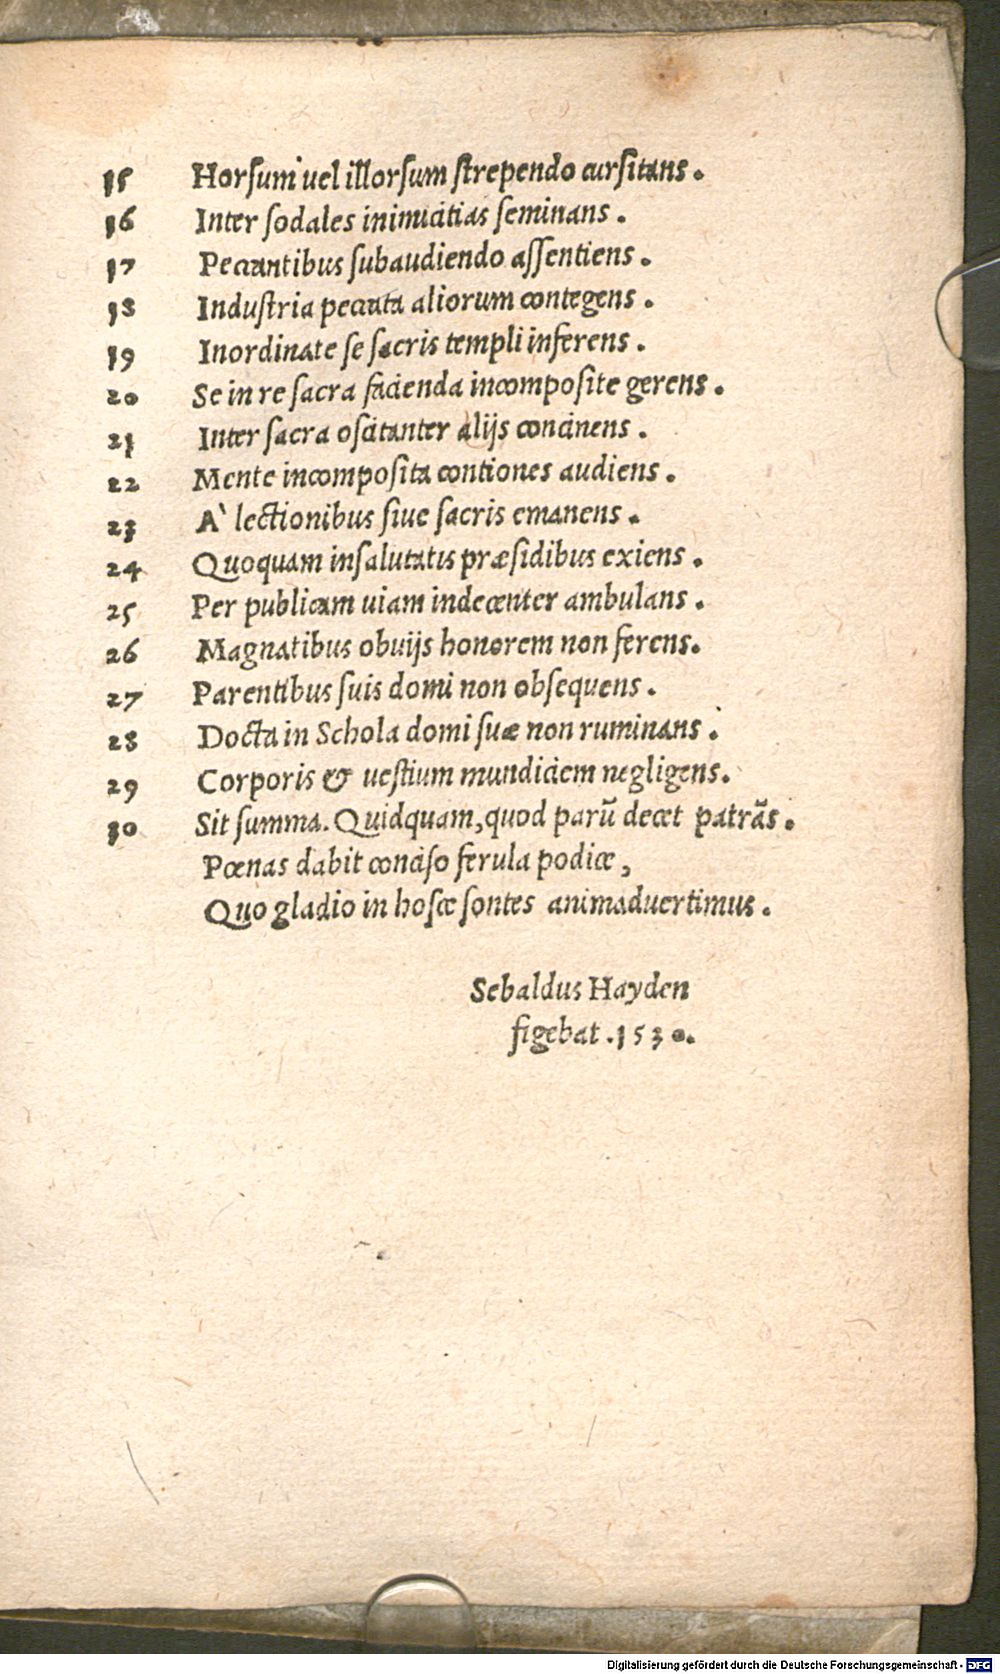 15 Horſum uel illorſum ſtrependo curſitans.
16 Inter ſodales inimicitias ſeminans.
17 Peccantibus ſubaudiendo aſſentiens.
18 Induſtria peccata aliorum contegens.
19 Inordinate ſe ſacris templi inferens.
20 Se in re ſacra facienda incompoſite gerens.
21 Inter ſacra oſcitanter alijs concinens.
22 Mente incompoſita contiones audiens.
23 A` lectionibus ſiue ſacris emanens.
24 Quoquam inſalutatis præſidibus exiens.
25 Per publicam uiam indecenter ambulans.
26 Magnatibus obuijs honorem non ferens.
27 Parentibus ſuis domi non obſequens.
28 Docta in Schola domi ſuæ non ruminans.
29 Corporis & ueſtium mundiciem negligens.
30 Sit ſumma. Quidquam, quod parū decet patrās.
Pœnas dabit conciſo ferula podice,
Quo gladio in hoſce ſontes animaduertimus.
Sebaldus Hayden
figebat .1530.
Digitalisierung gefördert durch die Deutsche Forschungsgemeinschaft - DFG